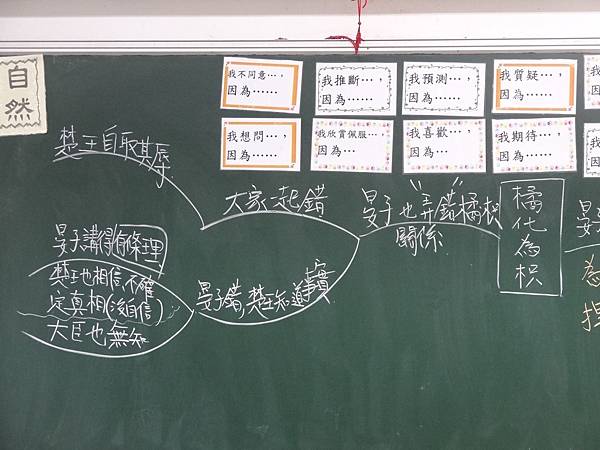 自然
我不同意…，
因為……
我推斷…，
因為……
我預測…，
因為……
我質疑…，
因為……
我想問…，
因為……
我欣賞佩服…，
因為…
我喜歡…，
因為…
我期待…，
因為……
橘化為枳
晏子也弄錯橘枳
關係
大家一起錯
晏子錯，楚王知道事實
楚王自取其辱
晏子講得有條理
楚王也相信，不確
定真相(沒自信)
大臣也無知
晏
為